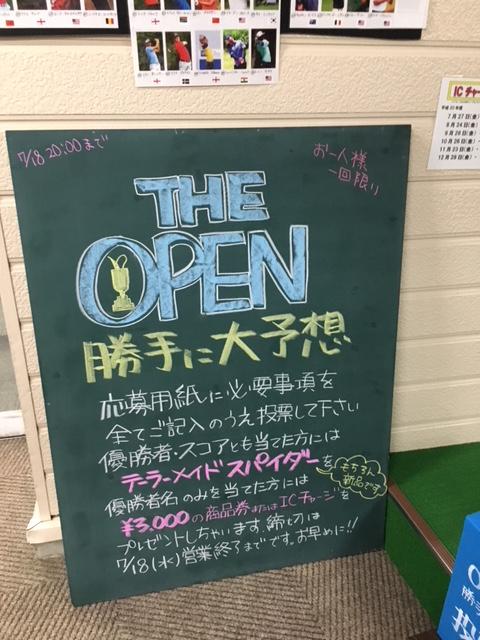 7/18 20:00まで
お一人様
一回限り
THE
OPEN
勝手に大予想
応募用紙に必要事項を
全てご記入のうえ投票して下さい
優勝者・スコアとも当てた方には
テーラーメイドスパイダーを
もちろん
新品です
優勝者名のみを当てた方には
¥3,000の商品券またはICチャージを
プレゼントしちゃいます。締切は
7/18(水)営業終了までです。お早めに!!
ICチャー
平成30年度
7月27日(金)
8月24日(金)
9月28日(金)
10月26日(金)
11月23日(金)
12月28日(金)